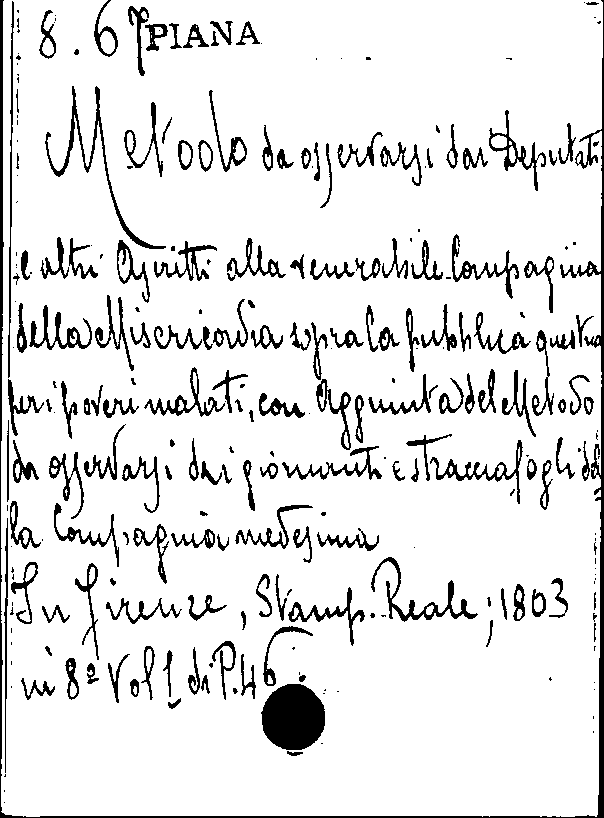 8.67 PIANA
Metodo da osservarsi dai Deputati
e altri Ascritti alla venerabile Compagnia
della Misericordia sopra la pubblica questua
per i poveri malati, con Aggiunta del Metodo
da osservarsi dai giornanti e stracciafogli del
la Compagnia medesima
In Firenze, Stamp. Reale; 1803
in 8º Vol 1 di P. 46.